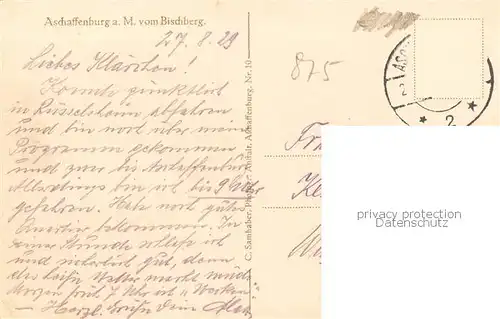 Aschaffenburg a. M. vom Bischberg.
27.8.29
875
Liebes Klärchen!
Konnte pünktlich
in Rüsselsheim abfahren
und bin noch über mein
Programm gekommen
und zwar bis Aschaffenburg
Allerdings bin ich bis 9 Uhr
gefahren. Habe noch gutes
Quartier bekommen. In
einer Stunde schlafe ich
und sicherlich gut, denn
das heiße Wetter macht müde
Morgen früh 7 Uhr ist "Wecken"
— Herzl. Grüße Dein
C. Samhaber, Photogr. Anstalt, Aschaffenburg. Nr. 10
2
privacy protection
Datenschutz